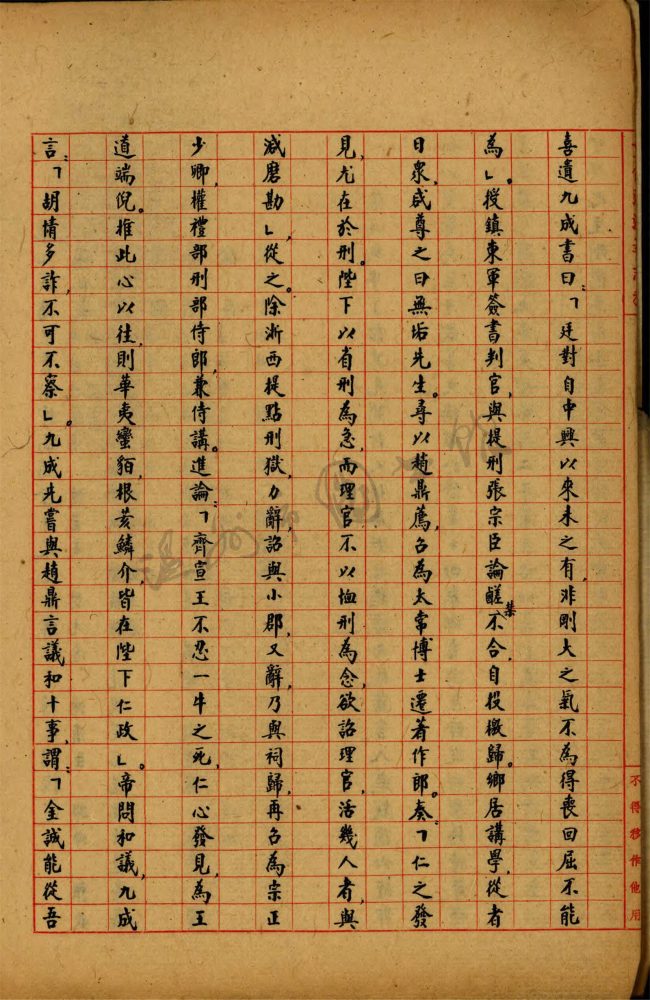 喜遺九成書曰：「廷對自中興以來未之有，非剛大之氣不為得喪回屈不能
為」。授鎮東軍簽書判官，與提刑張宗臣論鹺禁不合，自投檄歸。鄉居講學，從者
日衆，咸尊之曰無垢先生。尋以趙鼎薦，召為太常博士遷著作郎。奏：「仁之發
見，尤在於刑。陛下以省刑為急，而理官不以恤刑為念，欲詔理官，活幾人者，與
減磨勘」，從之。除浙西提點刑獄，力辭，詔與小郡，又辭，乃與祠歸，再召為宗正
少卿，權禮部刑部侍郎，兼侍講。進論：「齊宣王不忍一牛之死，仁心發見，為王
道端倪。推此心以往，則華夷蠻貊，根荄鱗介，皆在陛下仁政」。帝問和議，九成
言：「胡情多詐，不可不察」。九成先嘗與趙鼎言議和十事，謂：「金誠能從吾
不得移作他用